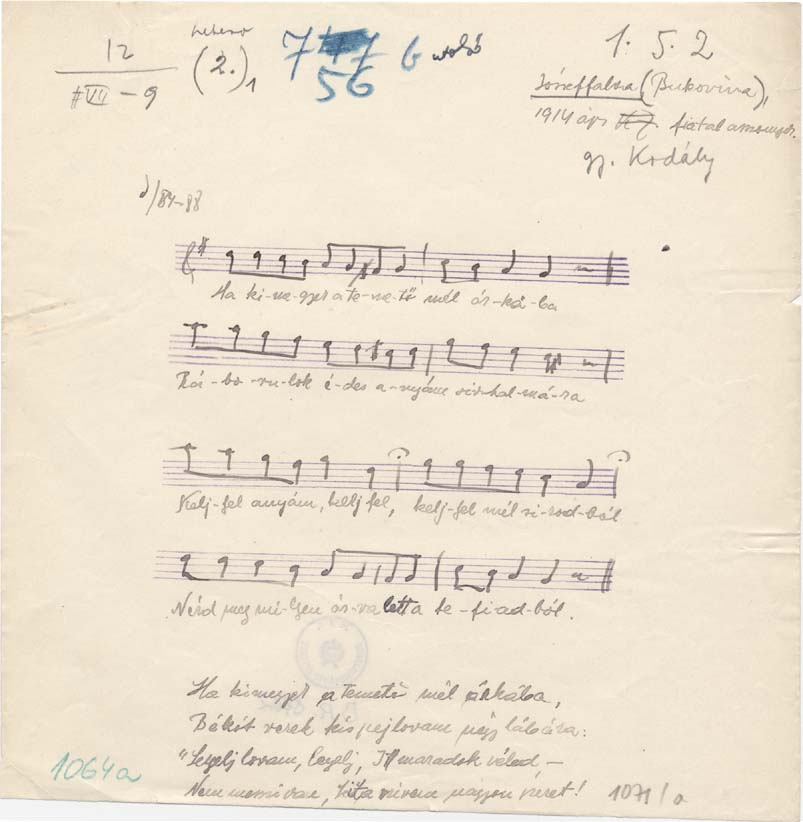 12
VII - 9
(2.)1
7 6 utolsó
56
1. 5. 2
Józseffalva (Bukovina),
1914 ápr. fiatal asszonyok.
gy. Kodály
/84-88
Ha ki-me-gyek a te-me-tő mél ár-ká-ba
Rá-bo-ru-lok é-des a-nyám sír-hal-má-ra
Kelj-fel anyám, kelj fel, kelj-fel mél sí-rod-ból
Nézd meg mi-lyen ár-va lett a te fi-ad-ból.
Ha kimegyek a temető mél árkába,
Békót verek kis pejlovam négy lábára:
"Legelj lovam, legelj, Itt maradok véled —
Nem messi van,
1064a
1071/a